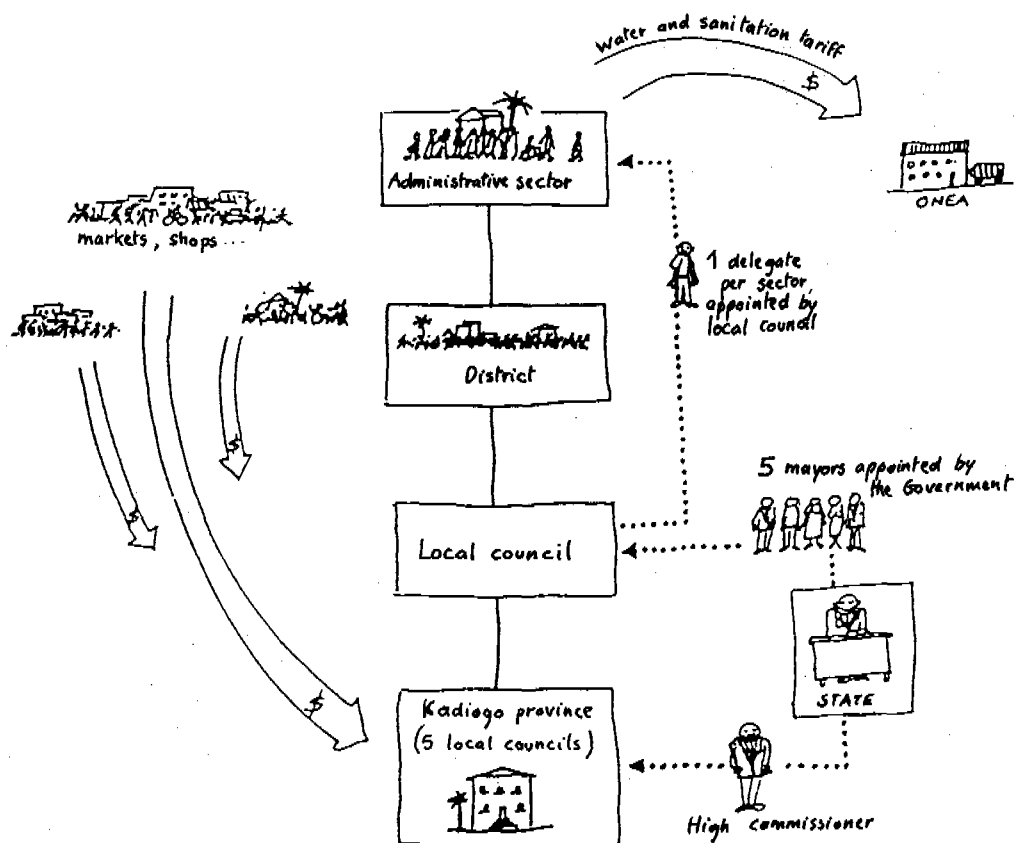 water and sanitation tariff
$
Administrative sector
ONEA
markets, shops ...
1 delegate
per sector,
appointed by
local council
District
$
5 mayors appointed by
the Government
$
Local council
STATE
$
Kadiogo province
(5 local councils)
High commissioner